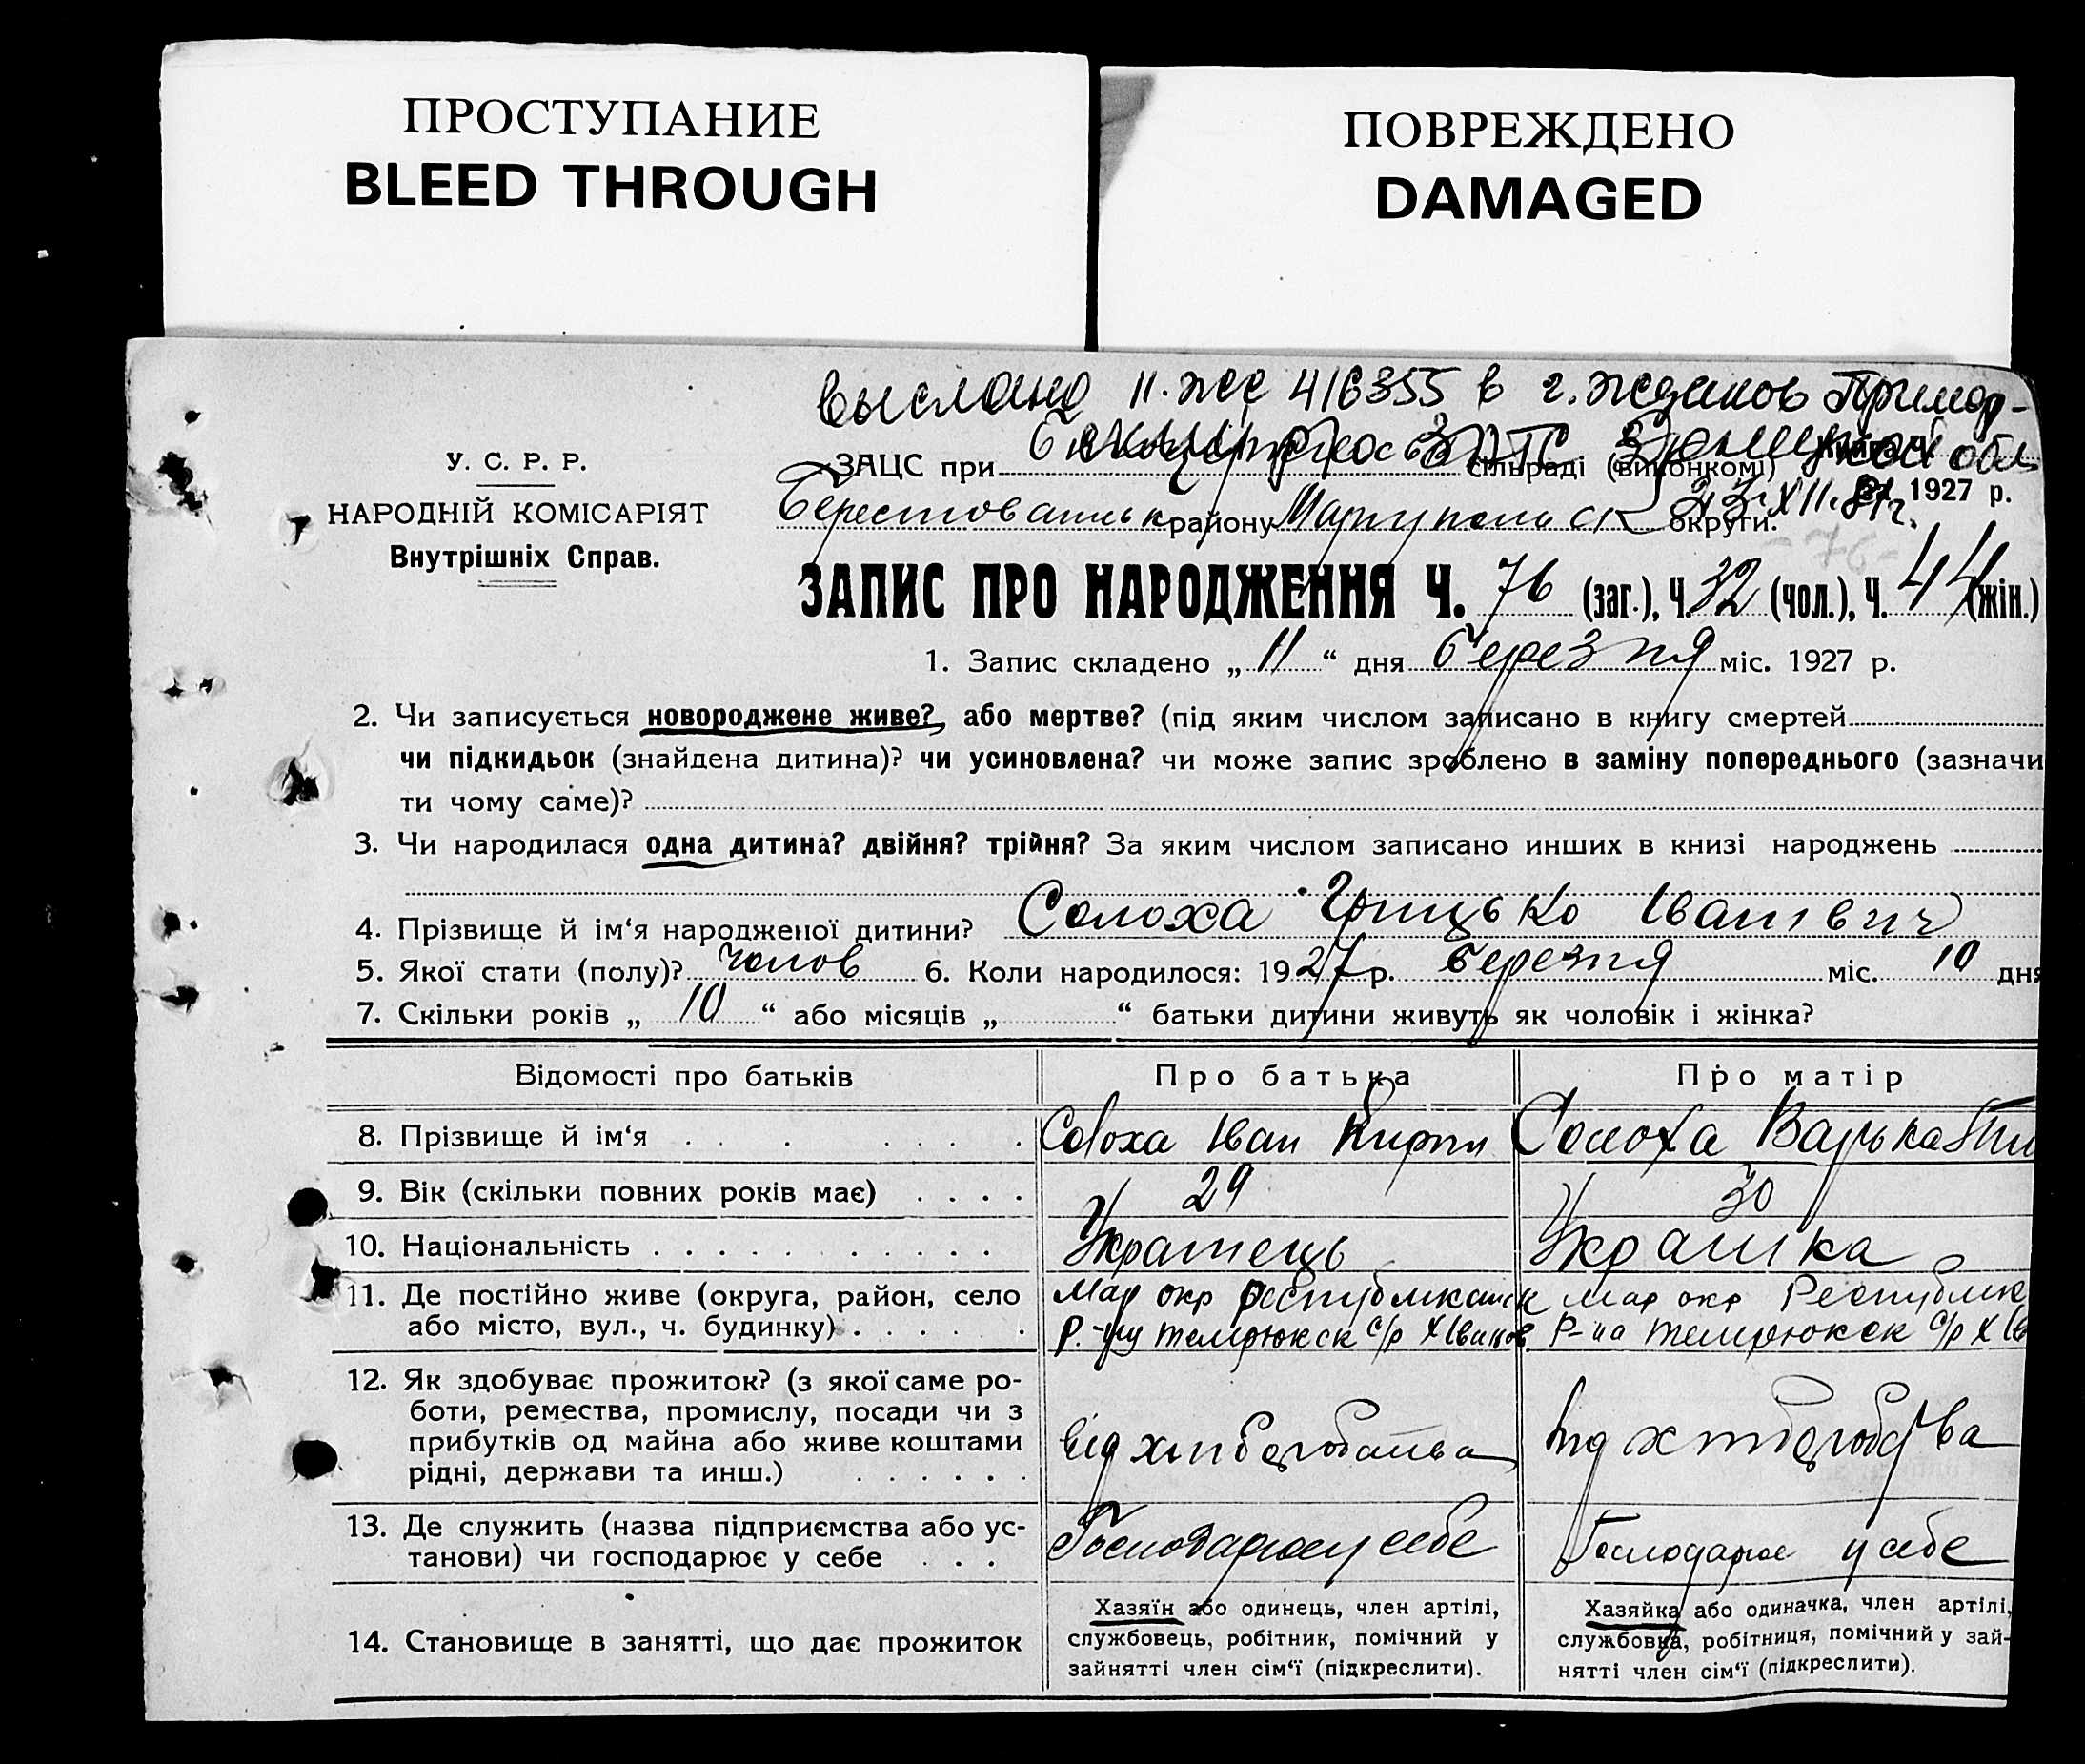 ПРОСТУПАНИЕ
BLEED THROUGH
ПОВРЕЖДЕНО
DAMAGED
выслано II.жсс 416355 в г. Жданов Примор-
обл
У. С. Р. Р.
НАРОДНІЙ КОМІСАРІЯТ
Внутрішніх Справ.
ЗАЦС при сільраді (виконкомі)
Берестованськ району Маріупольск округи. 1927 р.
23.XII.81г.
-76-
ЗАПИС ПРО НАРОДЖЕННЯ Ч. 76 (заг.), Ч. 32 (чол.), Ч. 44 (жін.)
1. Запис складено „ 11 “ дня березня міс. 1927 р.
2. Чи записується новороджене живе? або мертве? (під яким числом записано в книгу смертей
чи підкидьок (знайдена дитина)? чи усиновлена? чи може запис зроблено в заміну попереднього (зазначи
ти чому саме)?
3. Чи народилася одна дитина? двійня? трійня? За яким числом записано инших в книзі народжень
4. Прізвище й ім‘я народженої дитини? Солоха Грицько Іванівич
5. Якої стати (полу)? чолов 6. Коли народилося: 1927 р. березня міс. 10 дня
7. Скільки років „ 10 “ або місяців „ “ батьки дитини живуть як чоловік і жінка?
Відомості про батьків Про батька Про матір
8. Прізвище й ім‘я Солоха Іван Кирил Солоха Варька
9. Вік (скільки повних років має) 29 30
10. Національність Українець Українка
11. Де постійно живе (округа, район, село Мар окр Республиканск Мар окр Республик
або місто, вул., ч. будинку) Р-ну темрюкск с/р х Іванов Р-на темрюкск с/р х Ів
12. Як здобуває прожиток? (з якої саме ро-
боти, ремества, промислу, посади чи з
прибутків од майна або живе коштами від хліборобства від хліборобства
рідні, держави та инш.)
13. Де служить (назва підприємства або ус- Господарює у себе Господарює у себе
танови) чи господарює у себе
14. Становище в занятті, що дає прожиток
Хазяїн або одинець, член артілі,
службовець, робітник, помічний у
зайнятті член сім‘ї (підкреслити).
Хазяйка або одиначка, член артілі,
службовка, робітниця, помічний у зай-
нятті член сім‘ї (підкреслити).